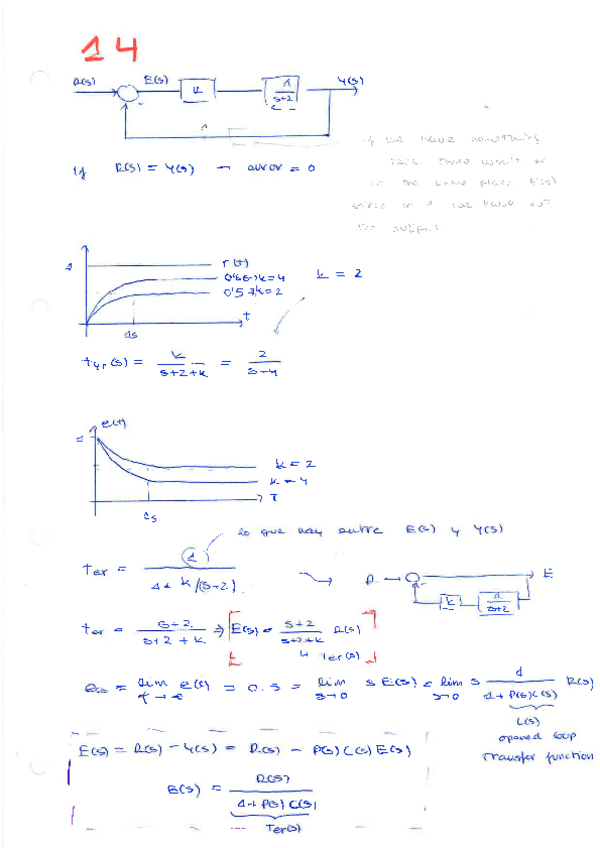 14
R(s) E(s) k 1/(s+2) Y(s)
-
if we have something
in the same place
If R(s) = Y(s) → error = 0
r(t)
0'66 → k=4
0'5 → k=2
k = 2
t
1s
Tyr(s) = k/(s+2+k) = 2/(s+4)
e(t)
k = 2
k = 4
t
lo que hay entre E(s) y Y(s)
Ter = 1/(1+k/(s+2))
R → E
k 1/(s+2)
Ter = (s+2)/(s+2+k) ⇒ E(s) = (s+2)/(s+2+k) R(s)
Ter(s)
ess = lim t→∞ e(t) = 0.5 = lim s→0 s E(s) = lim s→0 s 1/(1+P(s)C(s)) R(s)
L(s)
opened loop
transfer function
E(s) = R(s) - Y(s) = R(s) - P(s)C(s)E(s)
E(s) = R(s)/(1+P(s)C(s))
Ter(s)